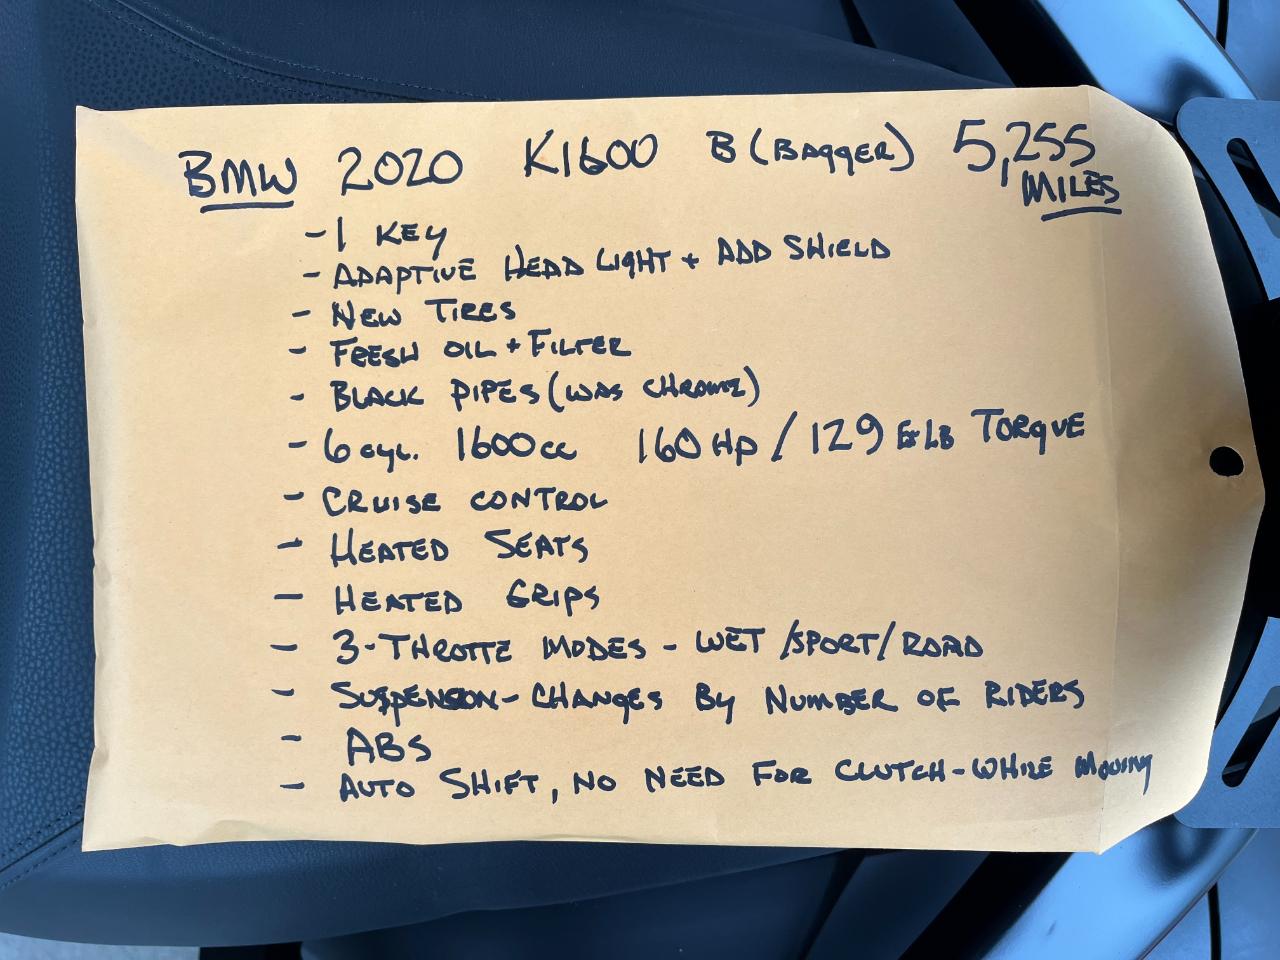 BMW 2020 K1600 B (BAGGER) 5,255 MILES
- 1 KEY
- ADAPTIVE HEAD LIGHT + ADD SHIELD
- NEW TIRES
- FRESH OIL + FILTER
- BLACK PIPES (WAS CHROME)
- 6 cyl. 1600cc 160 HP / 129 Ft LB TORQUE
- CRUISE CONTROL
- HEATED SEATS
- HEATED GRIPS
- 3-THROTTE MODES - WET /SPORT/ ROAD
- SUSPENSON - CHANGES BY NUMBER OF RIDERS
- ABS
- AUTO SHIFT, NO NEED FOR CLUTCH - WHILE MOVING